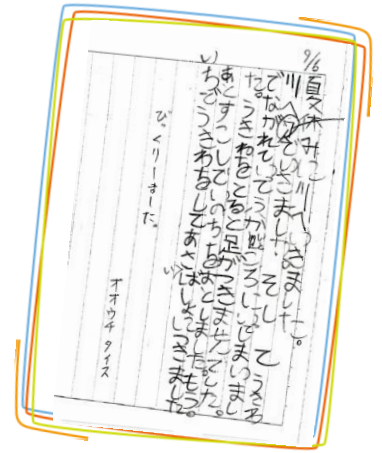 9/6
夏休みに川へいきました。
川へ いきました。そして うきわ
でながれていてうが深いころにいってしまいまし
た。うきわをとると足がつきませんでした。
あとすこしでいのちをおとしました。もう
いちどうきわをしてあさいばしょにいきました。
びっくりしました。
オオウチ タイス